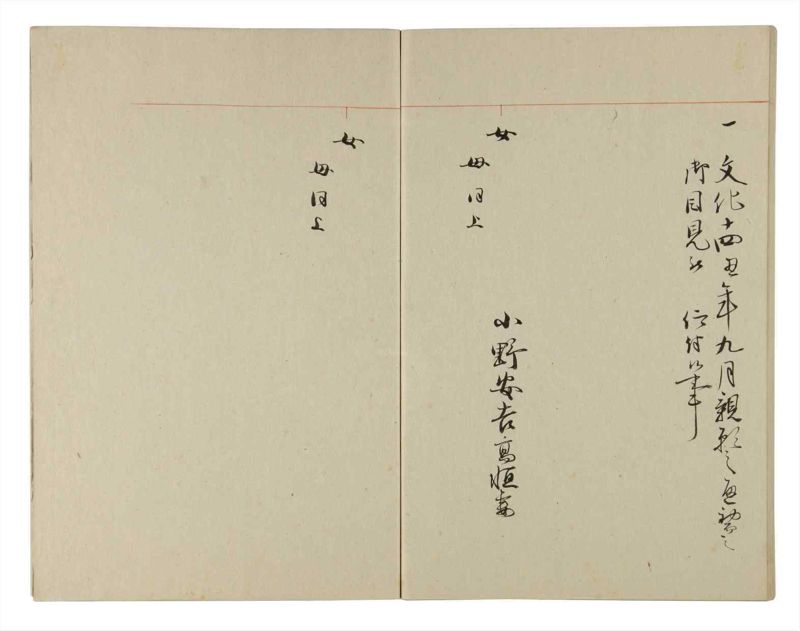 一 文化十四丑年九月親願之通初而之
御目見被 仰付候事
女
母同上
小野安吉高恒妻
女
母同上